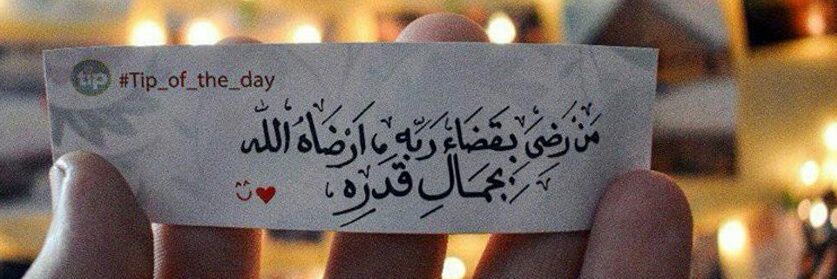 tip #Tip_of_the_day
مَن رَضِيَ بِقَضَاءِ رَبِّهِ، أَرْضَاهُ اللّٰه
بِجَمَالِ قَدَرِه